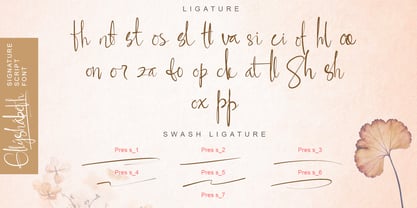 LIGATURE
th nt st os sl tl va si ci of hl oo
on or za fo op ck at ll Sh sh
ox pp
SWASH LIGATURE
Pres s_1 Pres s_2 Pres s_3
Pres s_4 Pres s_5 Pres s_6
Pres s_7
Elyshabeth
SIGNATURE
SCRIPT
FONT